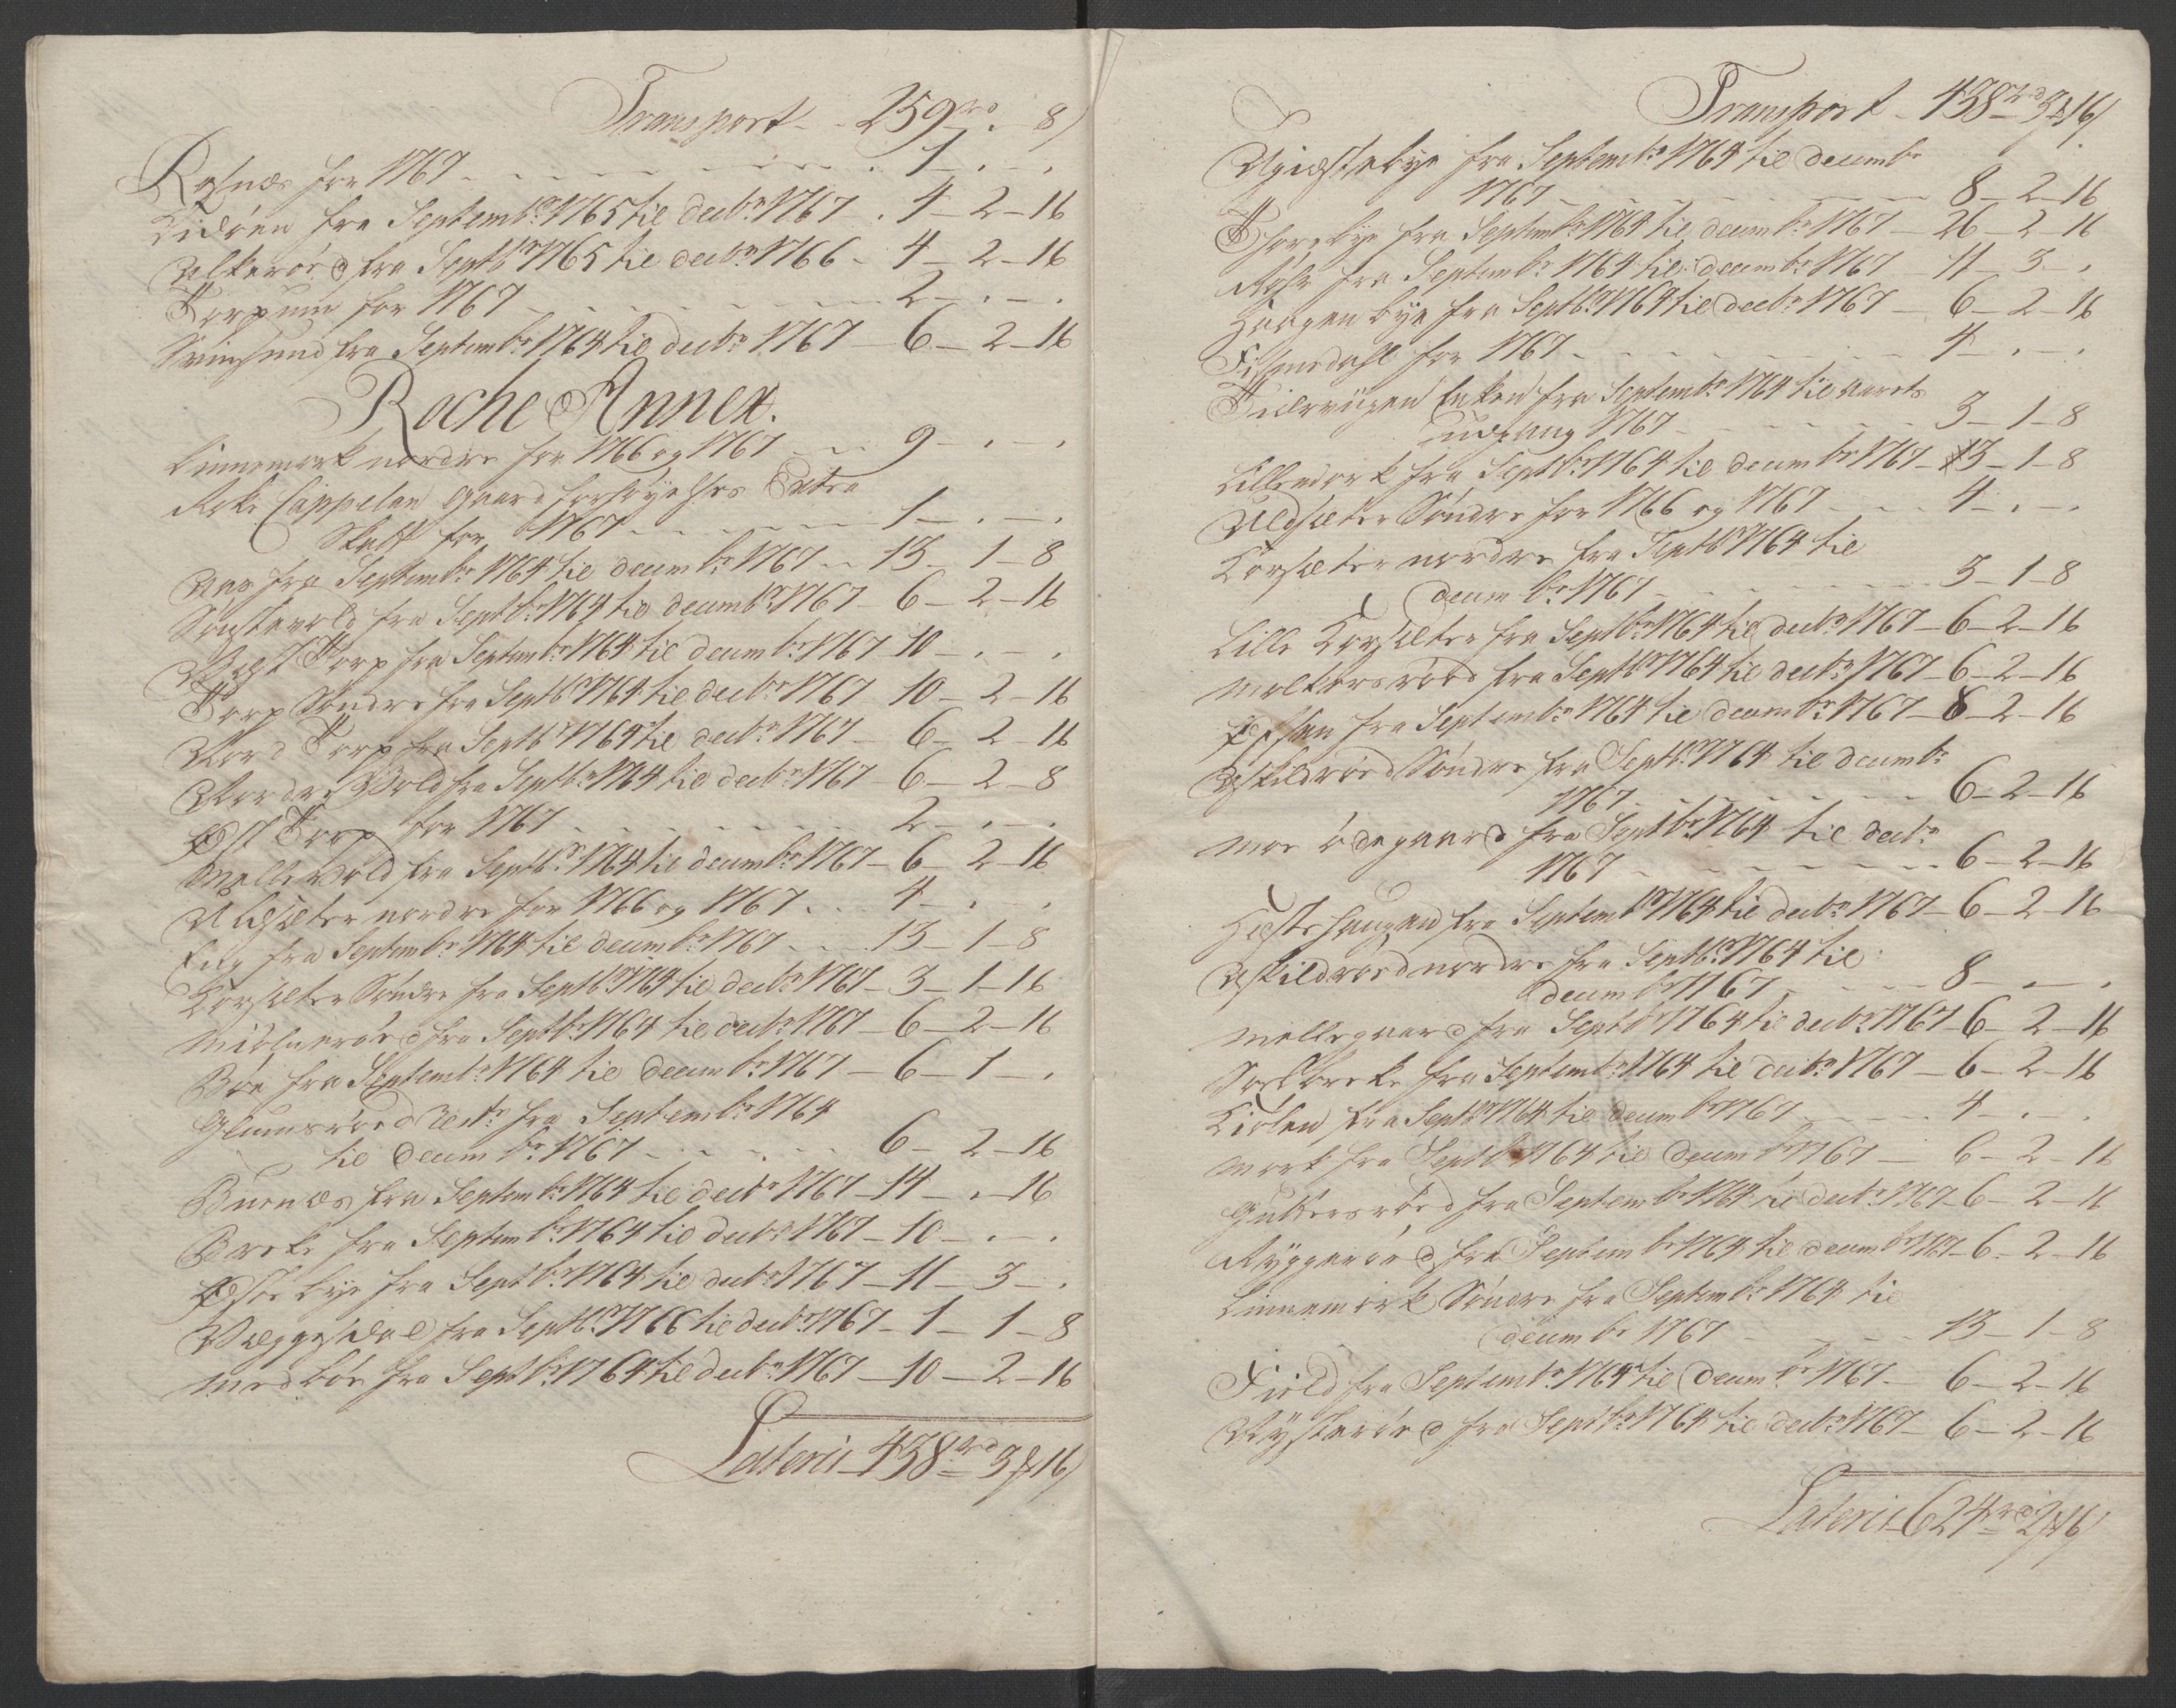 Transport - - 259 rd . - 8 ß
Rosnæs for 1767 - - - - - - 1 - . - .
Kidøen fra Septembr 1765 til decbr 1767 - . 4 - 2 - 16
Alkerød fra Septbr 1765 til decbr 1766 - 4 - 2 - 16
Torpum for 1767 - - - - - - 2 - . - .
Svinsund fra Septembr 1764 til decbr 1767 - 6 - 2 - 16
Roche Annex.
Linnemark nordre for 1766 og 1767 - - 9 - . - .
Roke Cappelan Gaard forhøyelses Extra
Skatt for 1767 - - - - - 1 - . - .
Aas fra Septembr 1764 til decembr 1767 - - 13 - 1 - 8
fra Septbr 1764 til decembr 1767 - 6 - 2 - 16
Vest Torp fra Septembr 1764 til decembr 1767 10 - . - .
Torp Søndre fra Septbr 1764 til decbr 1767 10 - 2 - 16
Nord Torp fra Septbr 1764 til decbr 1767 - 6 - 2 - 16
Nordre Vold fra Septbr 1764 til decbr 1767 - 6 - 2 - 8
Øst Torp for 1767 - - - - - - 2 - . - .
Melle Vold fra Septbr 1764 til decembr 1767 - 6 - 2 - 16
Ulsæter nordre for 1766 og 1767 . . 4 - . .
Eng fra Septembr 1764 til decembr 1767 - - 13 - 1 - 8
Korsæter Søndre fra Septbr 1764 til decbr 1767 - 3 - 1 - 16
fra Septbr 1764 til decbr 1767 - 6 - 2 - 16
Bøe fra Septembr 1764 til decembr 1767 - 6 - 1 - .
Glumsrød fra Septembr 1764
til decembr 1767 - - - - - 6 - 2 - 16
Buenæs fra Septembr 1764 til decbr 1767 - 14 - . - 16
Breke fra Septembr 1764 til decbr 1767 - 10 - . - .
Østbye fra Septbr 1764 til decbr 1767 - 11 - 3 - .
fra Septbr 1766 til decbr 1767 - 1 - 1 - 8
Medbøe fra Septbr 1764 til decbr 1767 - 10 - 2 - 16
Lateris - 438 rd 3 # 16 ß
Transport - 438 rd 3 # 16 ß
fra Septembr 1764 til decembr
1767 - - - - - - 8 - 2 - 16
Thorebye fra Septembr 1764 til decembr 1767 - 26 - 2 - 16
Røhr fra Septembr 1764 til decembr 1767 - 11 - 3 - .
Haagenbye fra Septbr 1764 til decbr 1767 - 6 - 2 - 16
for 1767 - - - - - - 4 - . - .
Enken fra Septembr 1764 til aarets
udgang 1767 - - - - - - 3 - 1 - 8
Lillemork fra Septbr 1764 til decembr 1767 - 3 - 1 - 8
Uldsæter Søndre for 1766 og 1767 - - - 4 - . - .
Korsæter nordre fra Septbr 1764 til
decembr 1767 - - - - - - 3 - 1 - 8
Lille Korsæter fra Septbr 1764 til decbr 1767 - 6 - 2 - 16
Moltersrød fra Septbr 1764 til decbr 1767 - 6 - 2 - 16
fra Septembr 1764 til decembr 1767 - 8 - 2 - 16
Askildrød Søndre fra Septbr 1764 til decembr
1767 - - - - - - 6 - 2 - 16
Moe ødegaard fra Septbr 1764 til decbr
1767 - - - - - - 6 - 2 - 16
Hestehaugen fra Septembr 1764 til decbr 1767 - 6 - 2 - 16
Askildrød nordre fra Septbr 1764 til
decembr 1767 - - - - - 8 - . - .
Mellegaard fra Septbr 1764 til decbr 1767 - 6 - 2 - 16
fra Septembr 1764 til decbr 1767 - 6 - 2 - 16
fra Septbr 1764 til decembr 1767 - - - 4 - . - .
Mork fra Septbr 1764 til decembr 1767 - 6 - 2 - 16
fra Septembr 1764 til decbr 1767 - 6 - 2 - 16
Ryggerød fra Septembr 1764 til decembr 1767 - 6 - 2 - 16
Linnemark Søndre fra Septembr 1764 til
decembr 1767 - - - - - 13 - 1 - 8
Field fra Septembr 1764 til decembr 1767 - 6 - 2 - 16
fra Septbr 1764 til decbr 1767 - 6 - 2 - 16
Lateris 624 rd 2 # 16 ß